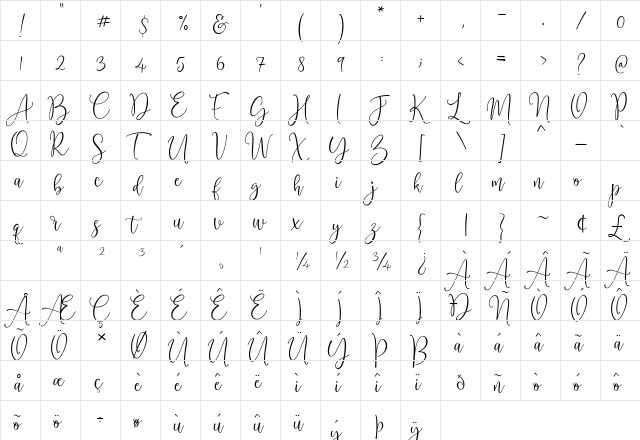 ! " # $ % & ' ( ) * + , - . / 0
1 2 3 4 5 6 7 8 9 : ; < = > ? @
A B C D E F G H I J K L M N O P
Q R S T U V W X Y Z [ \ ] ^ _ `
a b c d e f g h i j k l m n o p
q r s t u v w x y z { | } ~ ¢ £
ª ² ³ ´ ¸ ¹ ¼ ½ ¾ ¿ À Á Â Ã Ä
Å Æ Ç È É Ê Ë Ì Í Î Ï Ð Ñ Ò Ó Ô
Õ Ö × Ø Ù Ú Û Ü Ý Þ ß à á â ã ä
å æ ç è é ê ë ì í î ï ð ñ ò ó ô
õ ö ÷ ø ù ú û ü ý þ ÿ